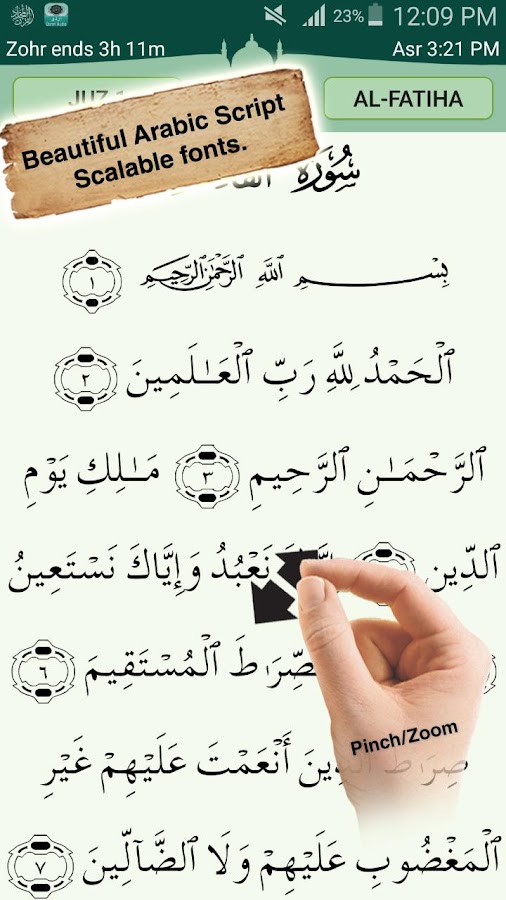 23% 12:09 PM
Zohr ends 3h 11m
Asr 3:21 PM
JUZ
AL-FATIHA
Beautiful Arabic Script
Scalable fonts.
سُورَةُ
بِسْمِ ٱللَّهِ ٱلرَّحْمَٰنِ ٱلرَّحِيمِ ١
ٱلْحَمْدُ لِلَّهِ رَبِّ ٱلْعَـٰلَمِينَ ٢
ٱلرَّحْمَـٰنِ ٱلرَّحِيمِ ٣ مَـٰلِكِ يَوْمِ
ٱلدِّينِ نَعْبُدُ وَإِيَّاكَ نَسْتَعِينُ
ٱلْمُسْتَقِيمَ ٦
Pinch/Zoom
أَنْعَمْتَ عَلَيْهِمْ غَيْرِ
ٱلْمَغْضُوبِ عَلَيْهِمْ وَلَا ٱلضَّآلِّينَ ٧